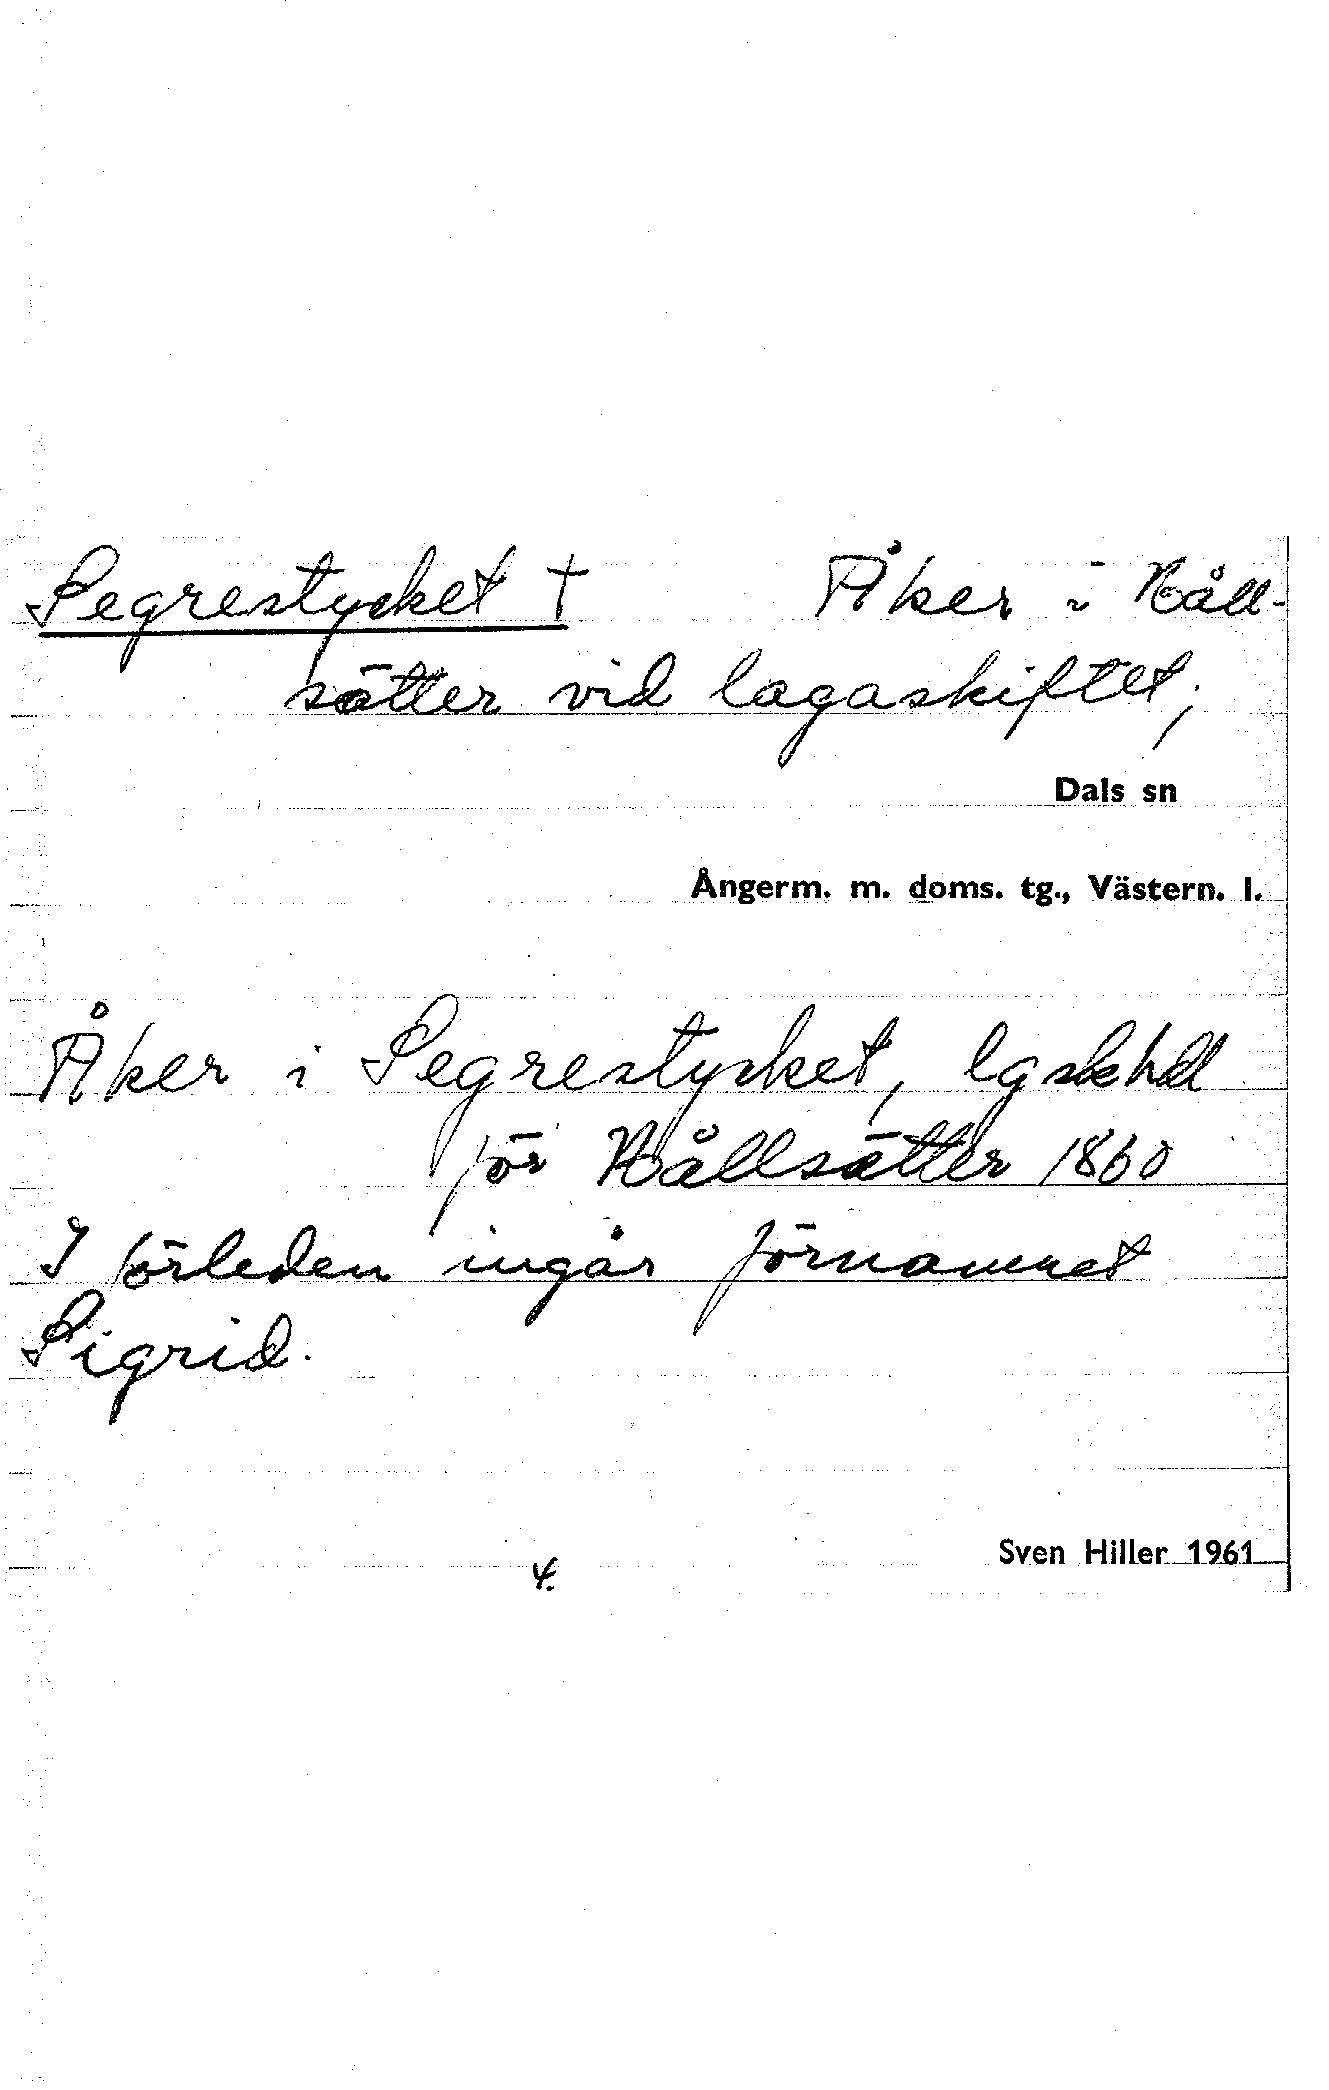 Segrestycket † Åker i Håll-
sätter vid lagaskiftet;
Dals sn
Ångerm. m. doms. tg., Västern. l.
Åker i Segrestycket, lgskhdl
för Hållsätter 1860
I förleden ingår förnamnet
Sigrid.
Sven Hiller 1961
4.